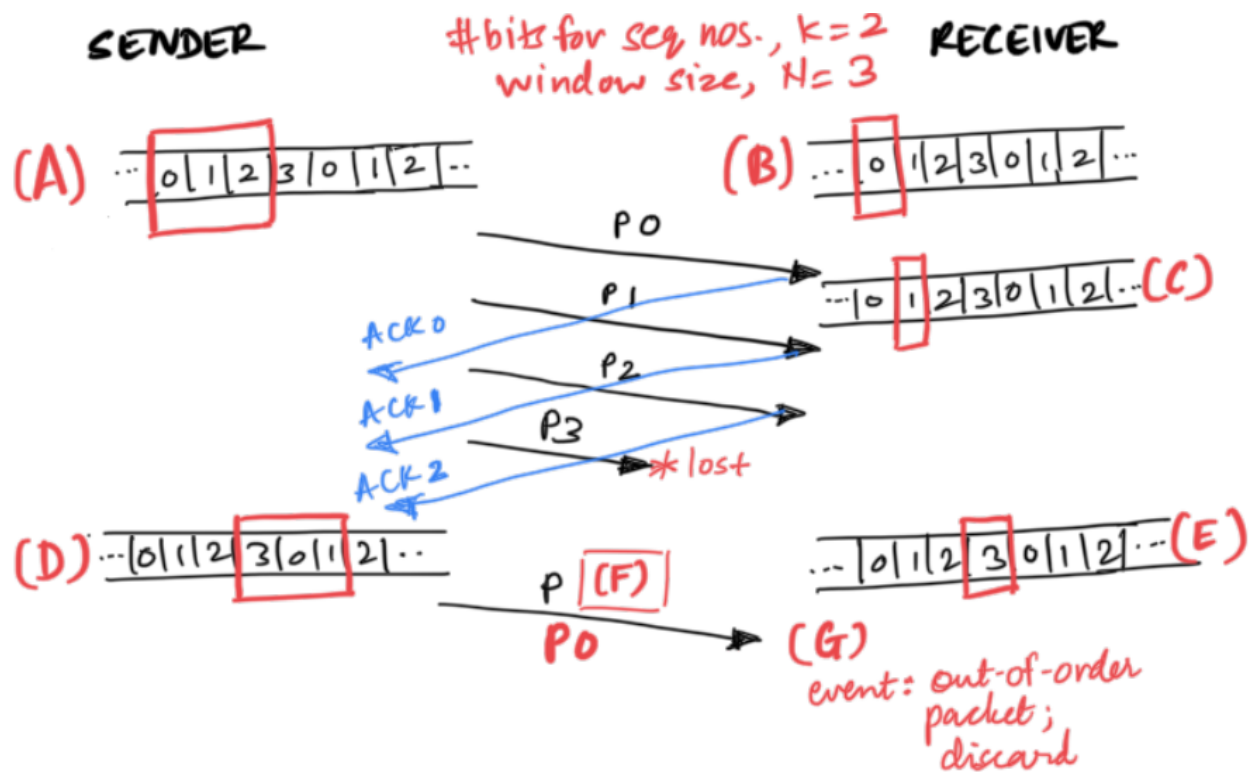 SENDER
#bits for seq nos., k=2
window size, N=3
RECEIVER
(A) ... 0 | 1 | 2 | 3 | 0 | 1 | 2 | ...
(B) ... 0 | 1 | 2 | 3 | 0 | 1 | 2 | ...
P0
... | 0 | 1 | 2 | 3 | 0 | 1 | 2 | ... (C)
P1
ACK0
P2
ACK1
P3
* lost
ACK2
(D) ... | 0 | 1 | 2 | 3 | 0 | 1 | 2 | ..
... | 0 | 1 | 2 | 3 | 0 | 1 | 2 | ... (E)
P (F)
P0
(G)
event: out-of-order
packet;
discard